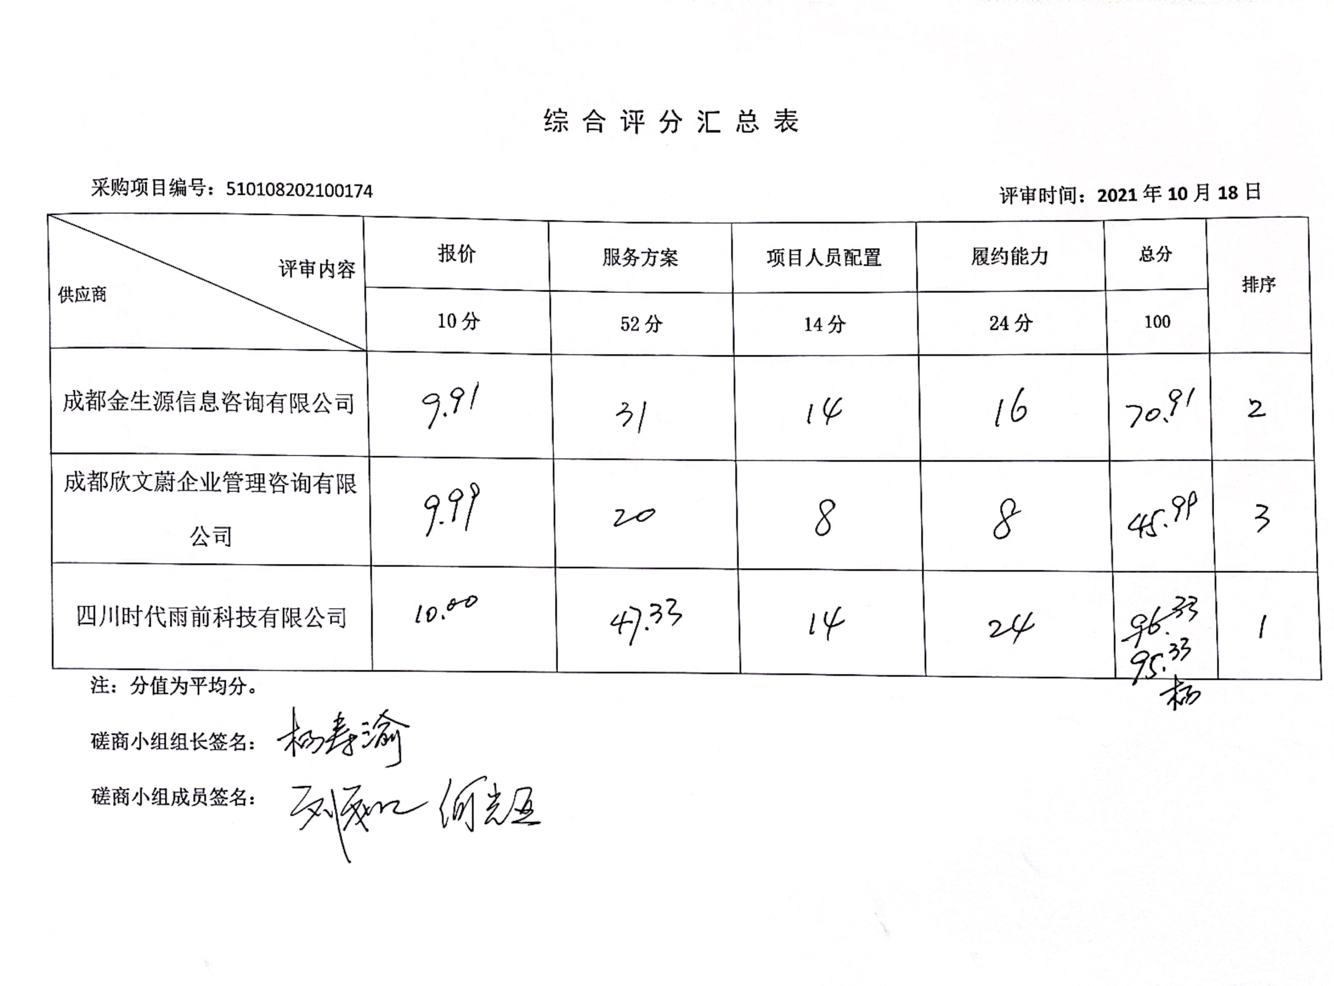 综合评分汇总表
采购项目编号：510108202100174
评审时间：2021年10月18日
评审内容
供应商
报价 服务方案 项目人员配置 履约能力 总分 排序
10分 52分 14分 24分 100
成都金生源信息咨询有限公司 9.91 31 14 16 70.91 2
成都欣文蔚企业管理咨询有限
公司 9.99 20 8 8 45.99 3
四川时代雨前科技有限公司 10.00 47.33 14 24 96.33 1
95.33
杨
注：分值为平均分。
磋商小组组长签名：杨寿渝
磋商小组成员签名：